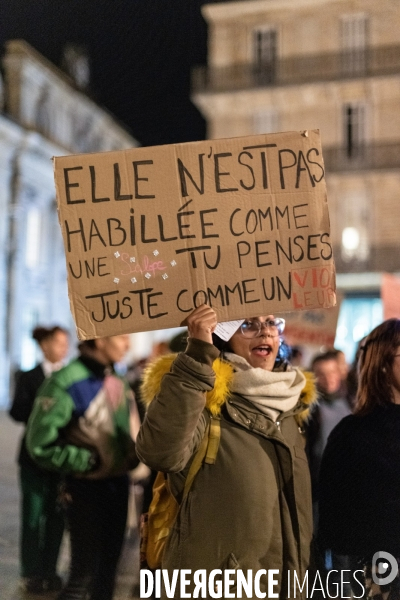 ELLE N'EST PAS
HABILLÉE COMME
UNE TU PENSES
JUSTE COMME UN VIO
LEUR
DIVERGENCE IMAGES